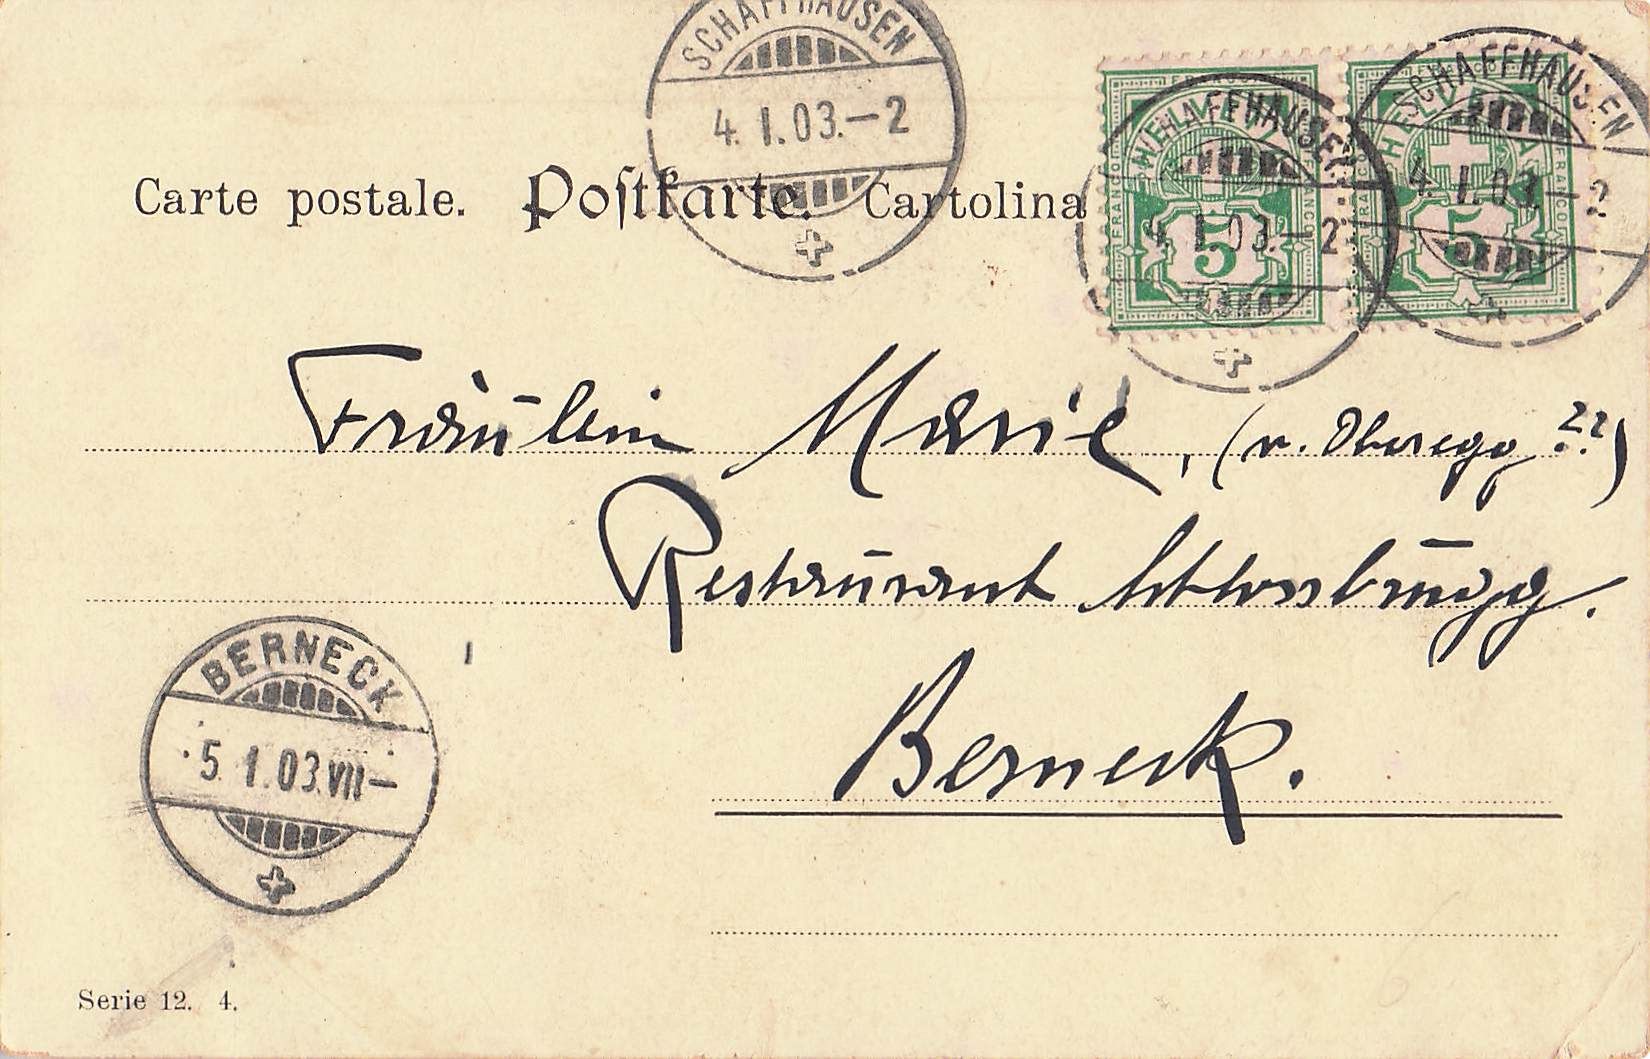 SCHAFFHAUSEN
4. I. 03.–2
Carte postale. Postkarte. Cartolina
SCHAFFHAUSEN
4. I. 03.–2
FRANCO
5
SCHAFFHAUSEN
4. I. 03.–2
FRANCO
5
Fräulein Marie, (v. Oberegg ??)
Restaurant Schlossbrugg.
Berneck.
BERNECK
5. 1. 03 VII–
Serie 12. 4.